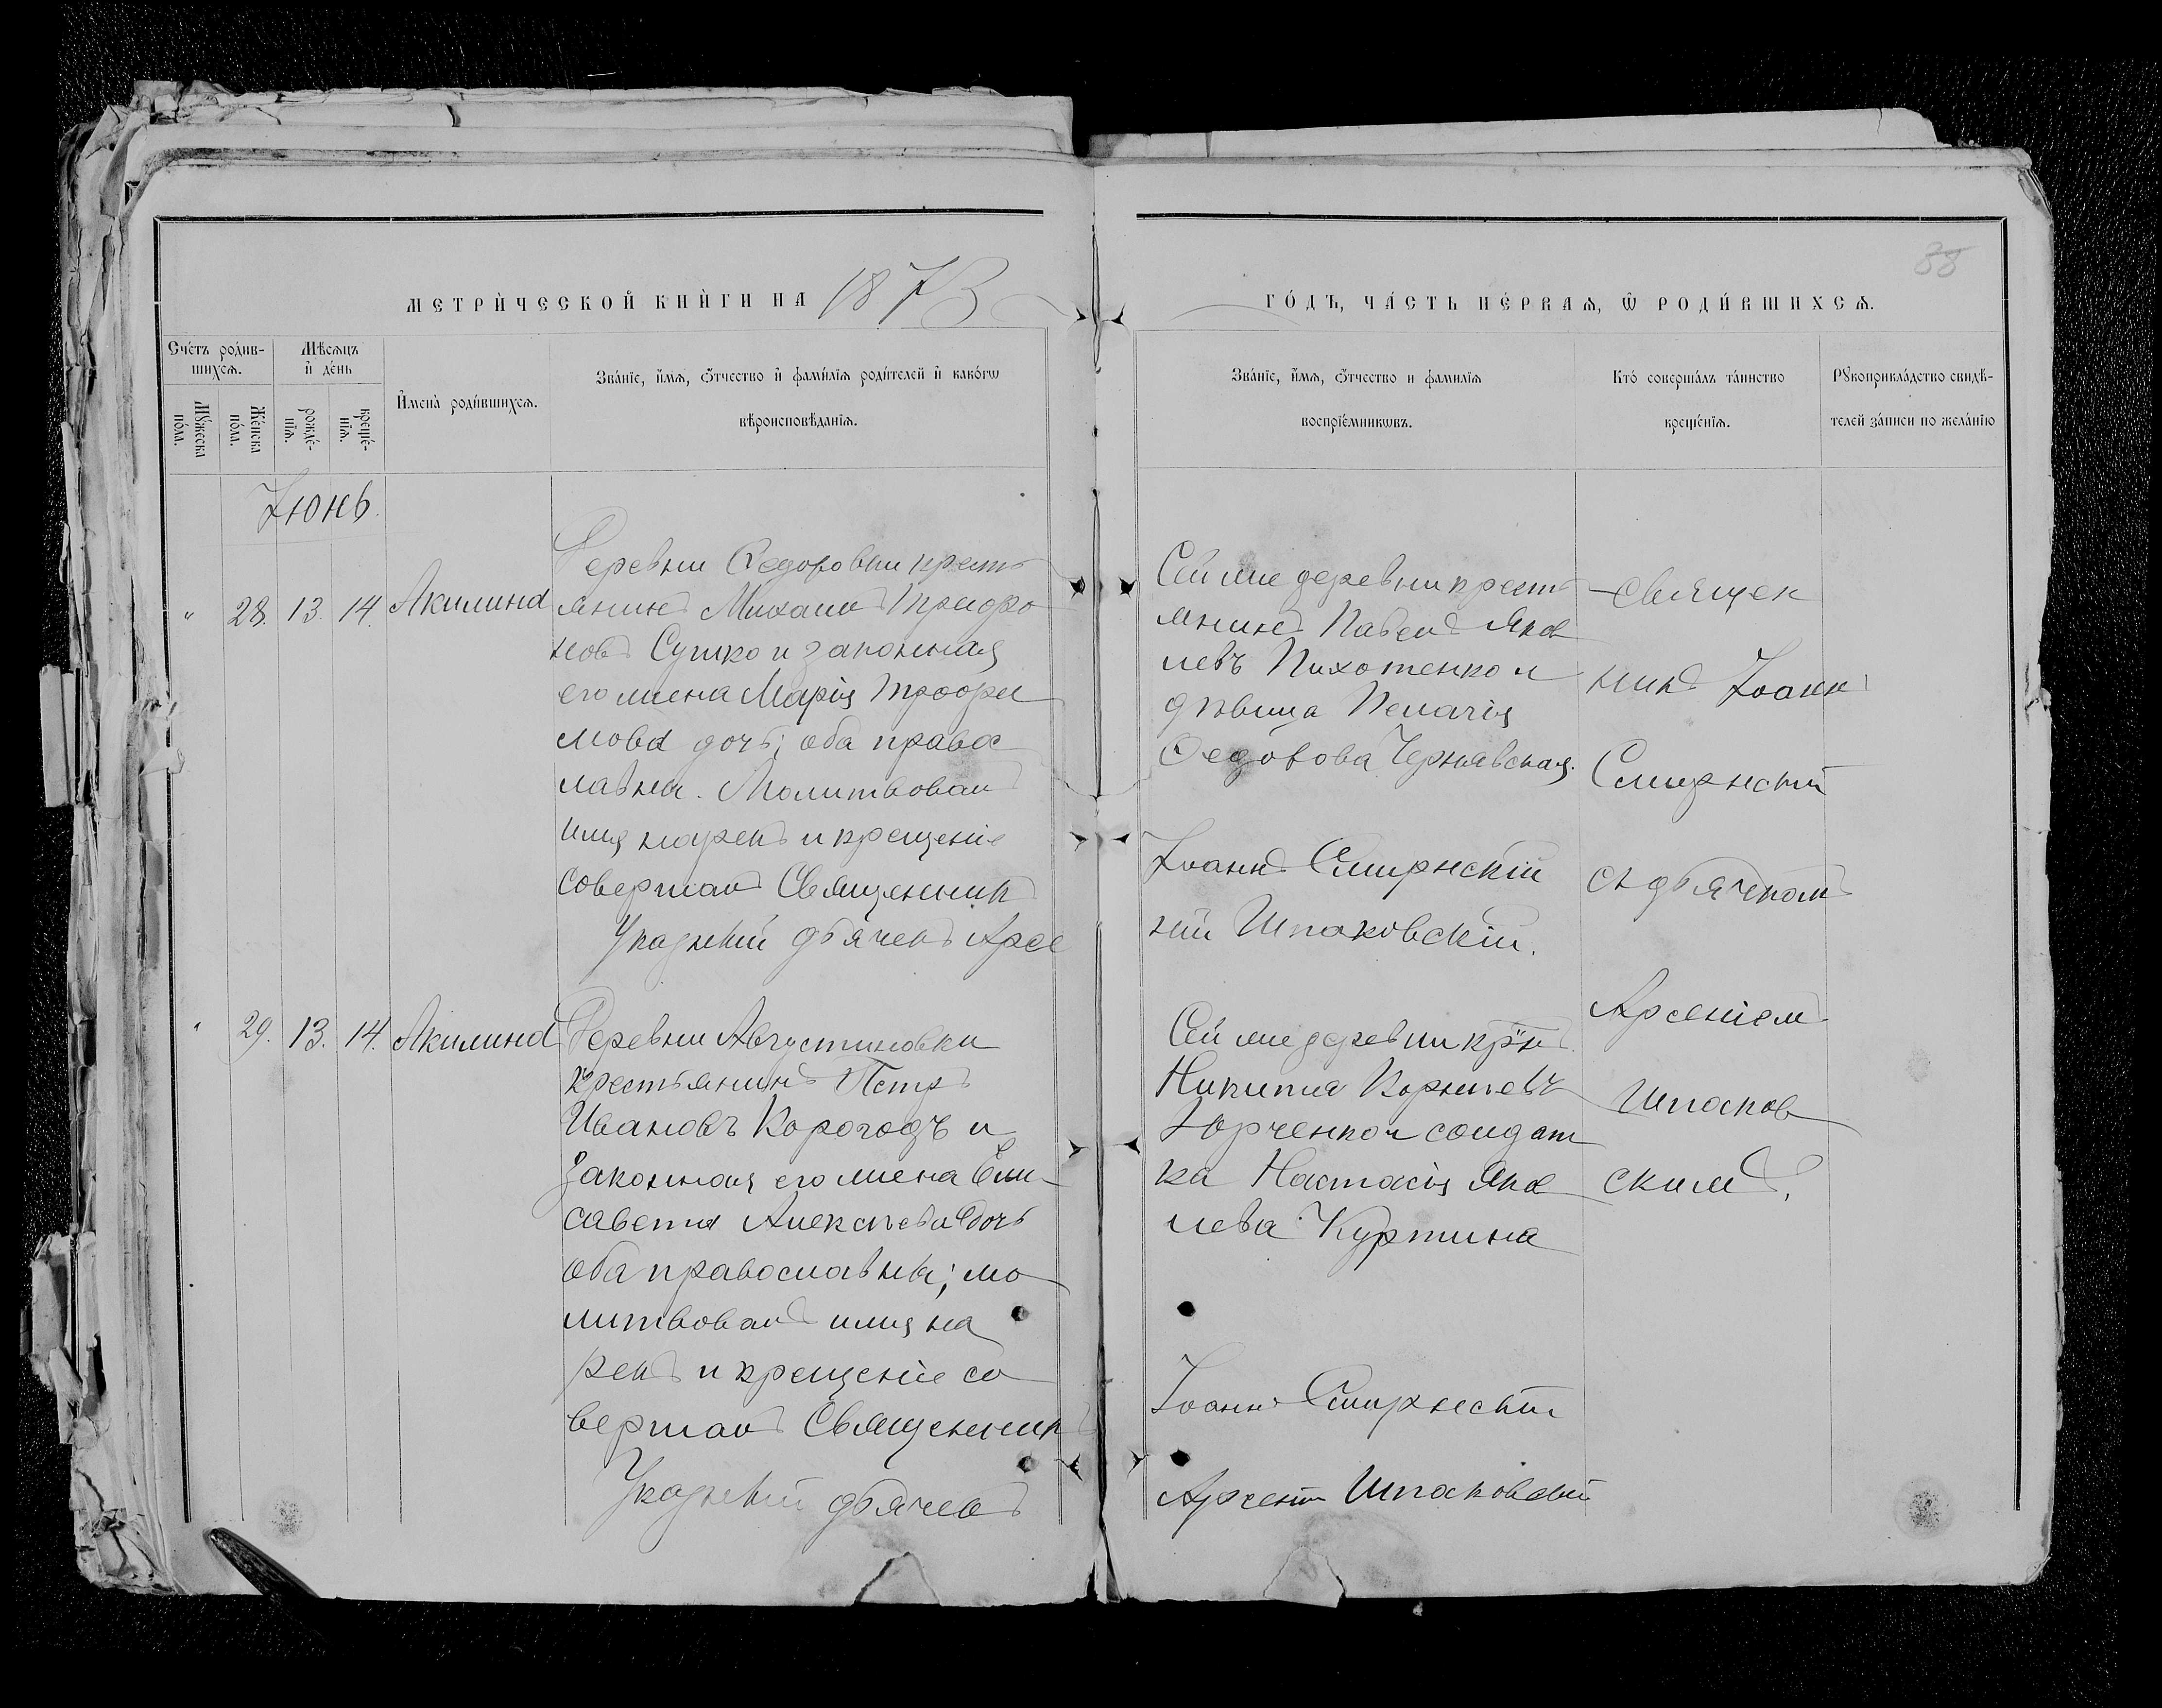 38
МЕТРИЧЕСКОЙ КНИГИ НА 1873
ГОДЪ, ЧАСТЬ ПЕРВАЯ, Ѡ РОДИВШИХСЯ.
Счетъ родив-
шихся.
Мужеска
пола.
Женска
пола.
Мѣсяцъ
и день
рожде-
нія.
креще-
нія.
Имена родившихся.
Званіе, имя, ѿчество и фамилія родителей и какогѡ
вѣроисповѣданія.
Званіе, имя, ѿчество и фамилія
воспріемникѡвъ.
Кто совершалъ таинство
крещенія.
Рукоприкладство свидѣ-
телей записи по желанію
Іюнь.
" 28. 13. 14. Акилина
Деревни Ѳедоровки кресть
янинъ Михаилъ
новъ Сушко и законная
его жена Марія Трофи
мова дочь; оба право
славны. Молитвовалъ
имя нарекъ и крещеніе
совершалъ Священникъ
Указный дьячекъ Арсе
Сей же деревни кресть
янинъ Павелъ Яков
левъ Пихотенко и
дѣвица Пелагія
Ѳедорова Чернявская.
Іоаннъ Смирнскій
ній Шпаковскій.
Священ
никъ Іоаннъ
Смирнскій
съ дьячкомъ
Арсеніемъ
Шпаков
скимъ.
" 29. 13. 14. Акилина
Деревни Августиновки
крестьянинъ Петръ
Ивановъ Корогодъ и
Законная его жена Ели-
савета Алексѣева дочь
оба православны; мо
литвовалъ имя на
рекъ и крещеніе со
вершалъ Священникъ
Указный дьячекъ
Сей же деревни кр-нъ
Никита Корніевъ
Юрченко и солдат
ка Настасія Яков
лева Куртина
Іоаннъ Смирнскій
Арсеній Шпаковскій